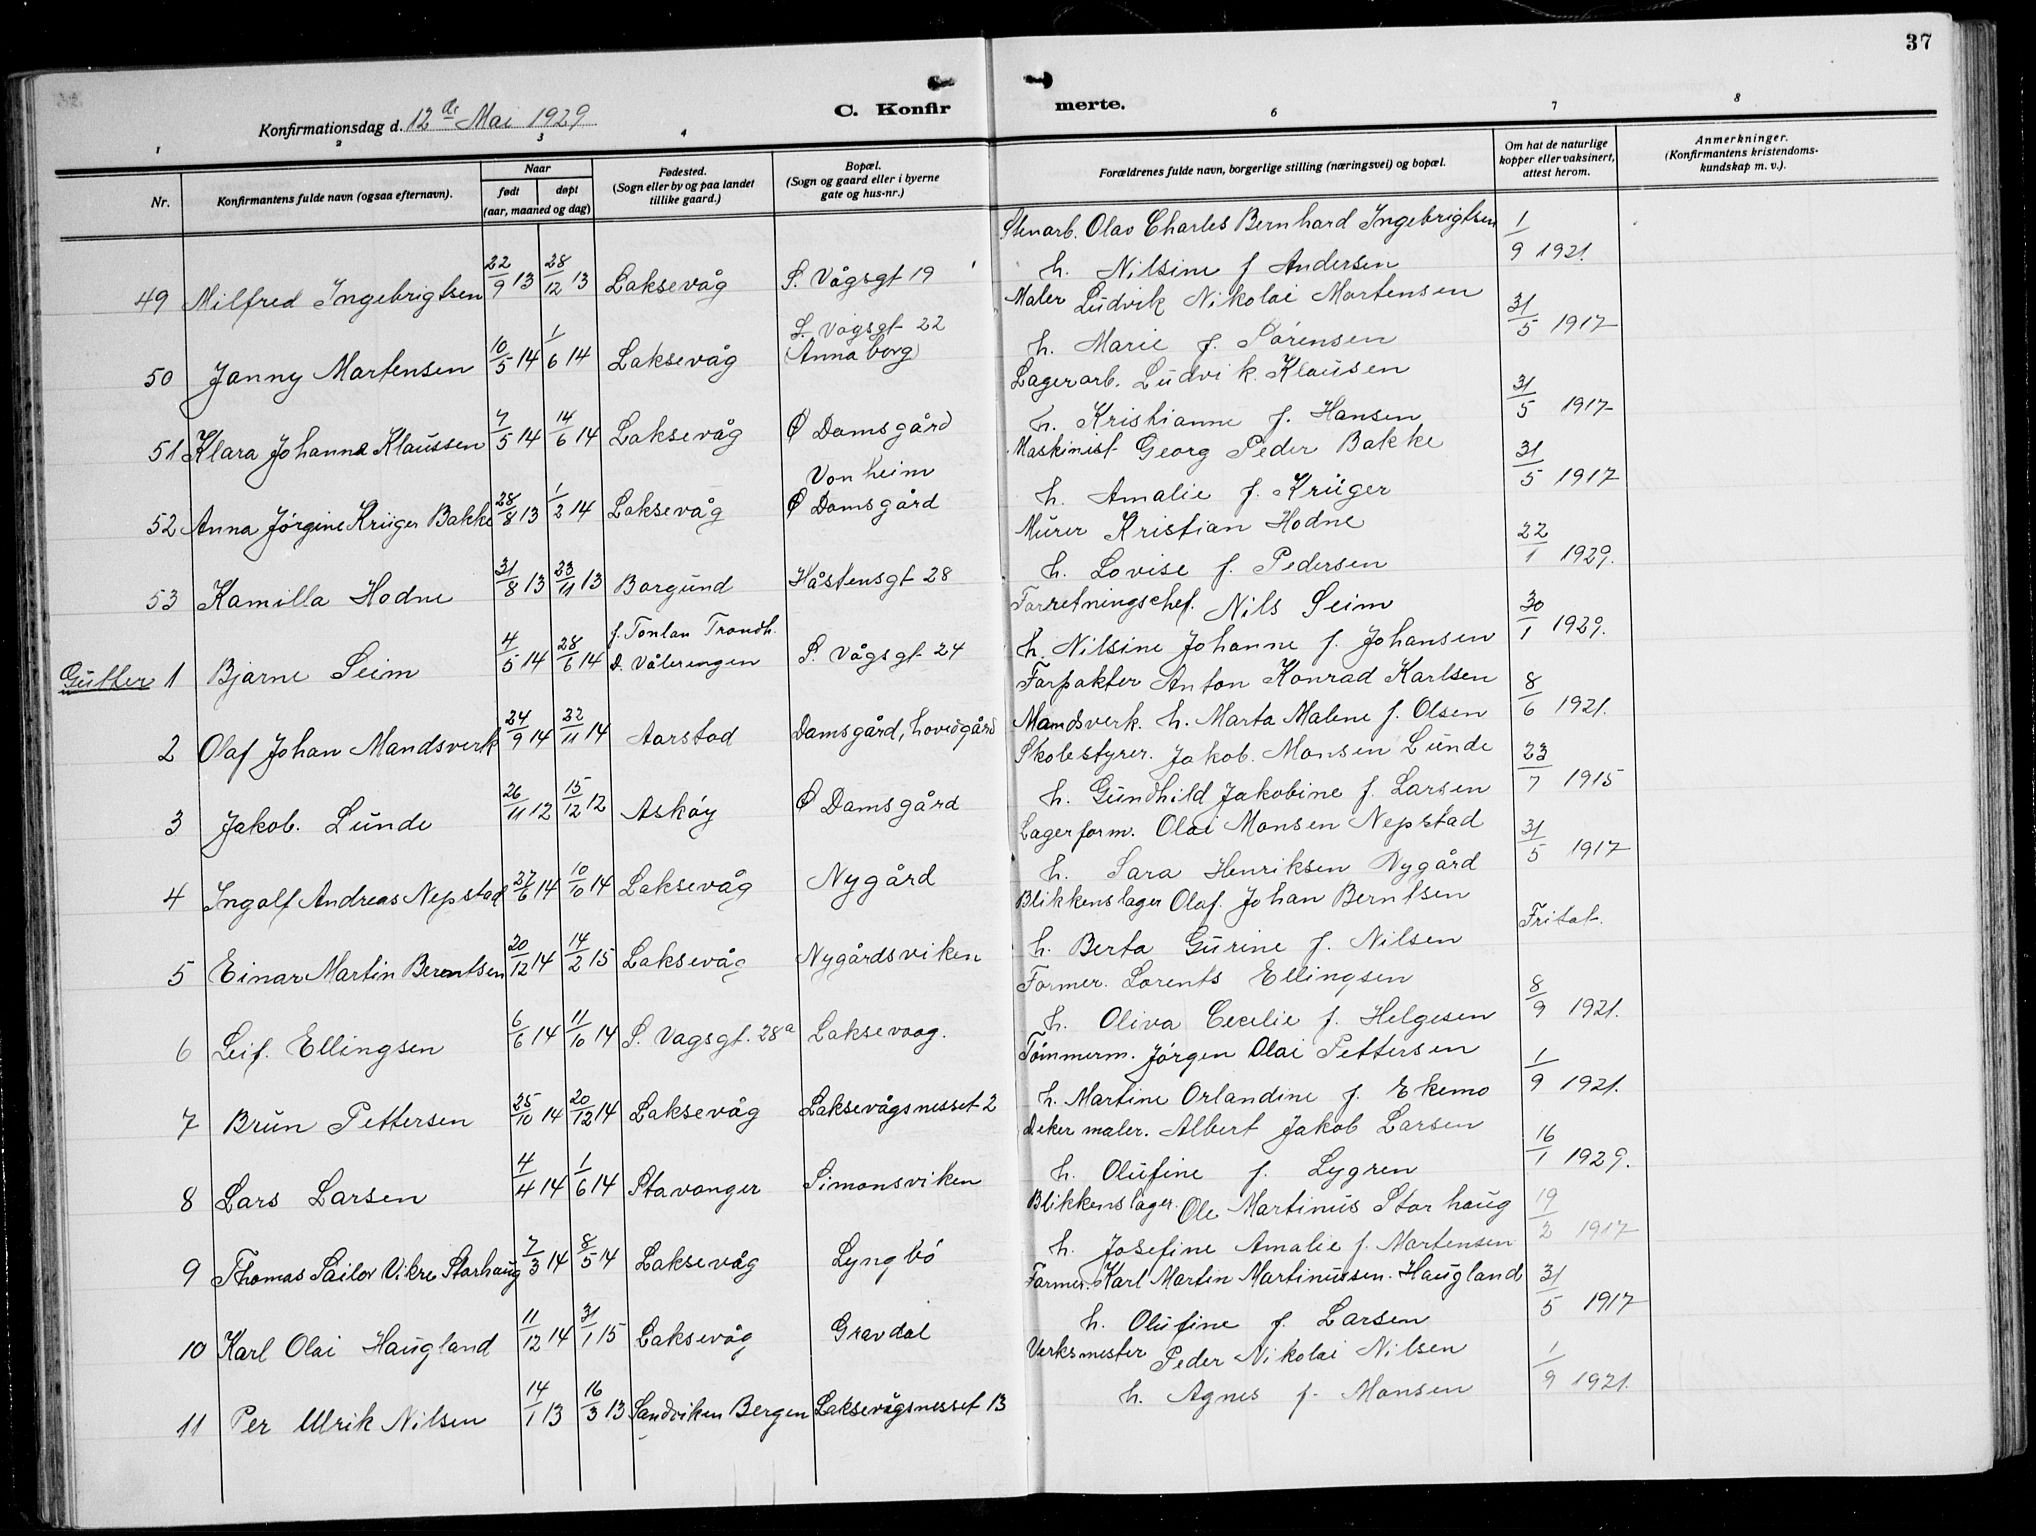 37
Konfirmationsdag d. 12te Mai 1929
C. Konfirmerte.
1 2 3 4 6 7 8
Nr.
Konfirmantens fulde navn (ogsaa efternavn).
Naar
født døpt
(aar, maaned og dag)
Fødested.
(Sogn eller by og paa landet
tillike gaard.)
Bopæl.
(Sogn og gaard eller i byerne
gate og hus-nr.)
Forældrenes fulde navn, borgerlige stilling (næringsvei) og bopæl.
Om hat de naturlige
kopper eller vaksinert,
attest herom.
Anmerkninger.
(Konfirmantens kristendoms-
kundskap m. v.).
49 Milfred Ingebrigtsen 22/9 13 28/12 13 Laksevåg S. Vågsgt 19 Stenarb. Olav Charles Bernhard Ingebrigtsen 1/9 1921.
h. Nilsine f Andersen
50 Janny Martensen 10/5 14 1/6 14 Laksevåg S. Vågsgt 22 (Annaborg) Maler Ludvik Nikolai Martensen 31/5 1917
h. Marie f. Sørensen
51 Klara Johanna Klaussen 7/5 14 14/6 14 Laksevåg Ø Damsgård Lagerarb. Ludvik Klausen 31/5 1917
h. Kristianne f. Hansen
52 Anna Jørgine Krüger Bakke 28/8 13 1/2 14 Laksevåg Vonheim Ø Damsgård Maskinist Georg Peder Bakke 31/5 1917
h. Amalie f. Krüger
53 Kamilla Hodne 31/8 13 23/11 13 Borgund Håstensgt 28 Murer Kristian Hodne 22/1 1929.
h. Lovise f. Pedersen
Gutter 1 Bjarne Seim 4/5 14 28/6 14 f. Tonlan Trondh. D. Vålerengen S. Vågsgt 24 Forretningschef. Nils Seim 30/1 1929.
h. Nilsine Johanne f. Johansen
2 Olaf Johan Mandsverk 24/9 14 22/11 14 Aarstad Damsgård, hovedgård Forpakter Anton Konrad Karlsen 8/6 1921.
Mandsverk. h. Marta Malene f. Olsen
3 Jakob. Lunde 26/11 12 15/12 12 Askøy Ø Damsgård Skolestyrer. Jakob. Monsen Lunde 23/7 1915
h. Gundhild Jakobine f. Larsen
4 Ingolf Andreas Nepstad 27/6 14 10/10 14 Laksevåg Nygård Lagerform. Olai Monsen Nepstad 31/5 1917
h. Sara Henriksen Nygård
5 Einar Martin Berentsen 20/12 14 14/2 15 Laksevåg Nygårdsviken Blikkenslager Olaf. Johan Berntsen Fritat.
h. Berta Gurine f. Nilsen
6 Leif. Ellingsen 6/6 14 11/10 14 S. Vagsgt. 28a Laksevaag. Former. Lorents Ellingsen 8/9 1921.
h. Oliva Cecelie f. Helgesen
7 Brun Pettersen 25/10 14 20/12 14 Laksevåg Laksevågsnesset 2 Tømmerm. Jørgen Olai Pettersen 1/9 1921.
h. Martine Orlandine f. Ekemo
8 Lars Larsen 4/4 14 1/6 14 Stavanger Simonsviken Dekermaler. Albert Jakob Larsen 16/1 1929.
h. Olufine f. Lygren
9 Thomas Sailor Vikre Storhaug 7/3 14 8/5 14 Laksevåg Lyngbø Blikkenslager. Ole Martinus Storhaug 19/2 1917
h. Josefine Amalie f. Martensen
10 Karl Olai Haugland 11/12 14 31/1 15 Laksevåg Gravdal Former. Karl Martin Martinussen. Haugland 31/5 1917
h. Olufine f. Larsen
11 Per Ulrik Nilsen 14/1 13 16/3 13 Sandviken Bergen Laksevågsnesset 13 Verksmester Peder Nikolai Nilsen 1/9 1921.
h. Agnes f. Monsen